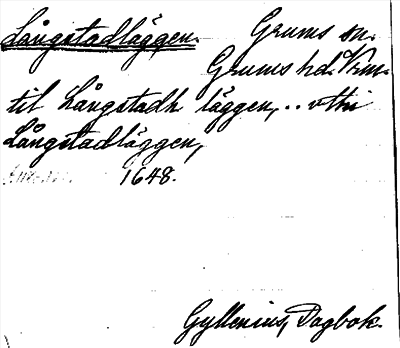 Långstadläggen. Grums sn.
Grums hd. Vrml.
til Långstadh läggen, .. vthi
Långstadläggen,
1648.
Gyllenius, Dagbok.